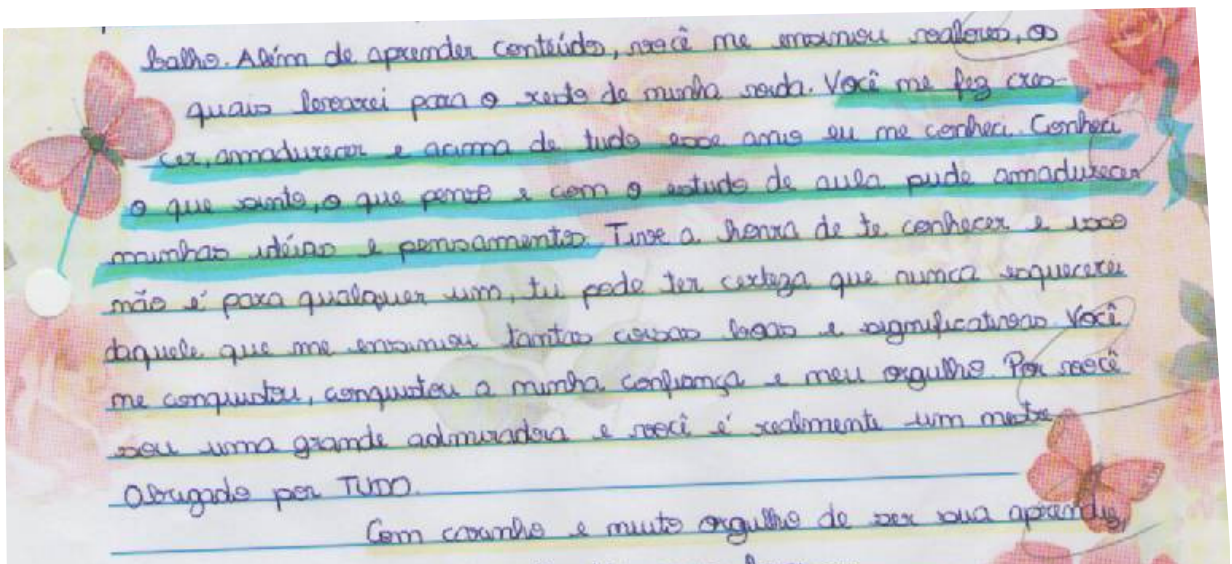 balho. Além de aprender conteúdos, você me ensinou valores, os
quais levarei para o resto de minha vida. Você me fez cres-
cer, amadurecer e acima de tudo esse ano eu me conheci. Conheci
o que sinto, o que penso e com o estudo de aula pude amadurecer
minhas idéias e pensamentos. Tive a honra de te conhecer e isso
não é para qualquer um, tu pode ter certeza que nunca esquecerei
daquele que me ensinou tantas coisas boas e significativas. Você
me conquistou, conquistou a minha confiança e meu orgulho. Por você
sou uma grande admiradora e você é realmente um mestre.
Obrigado por TUDO.
Com carinho e muito orgulho de ser sua aprendiz,